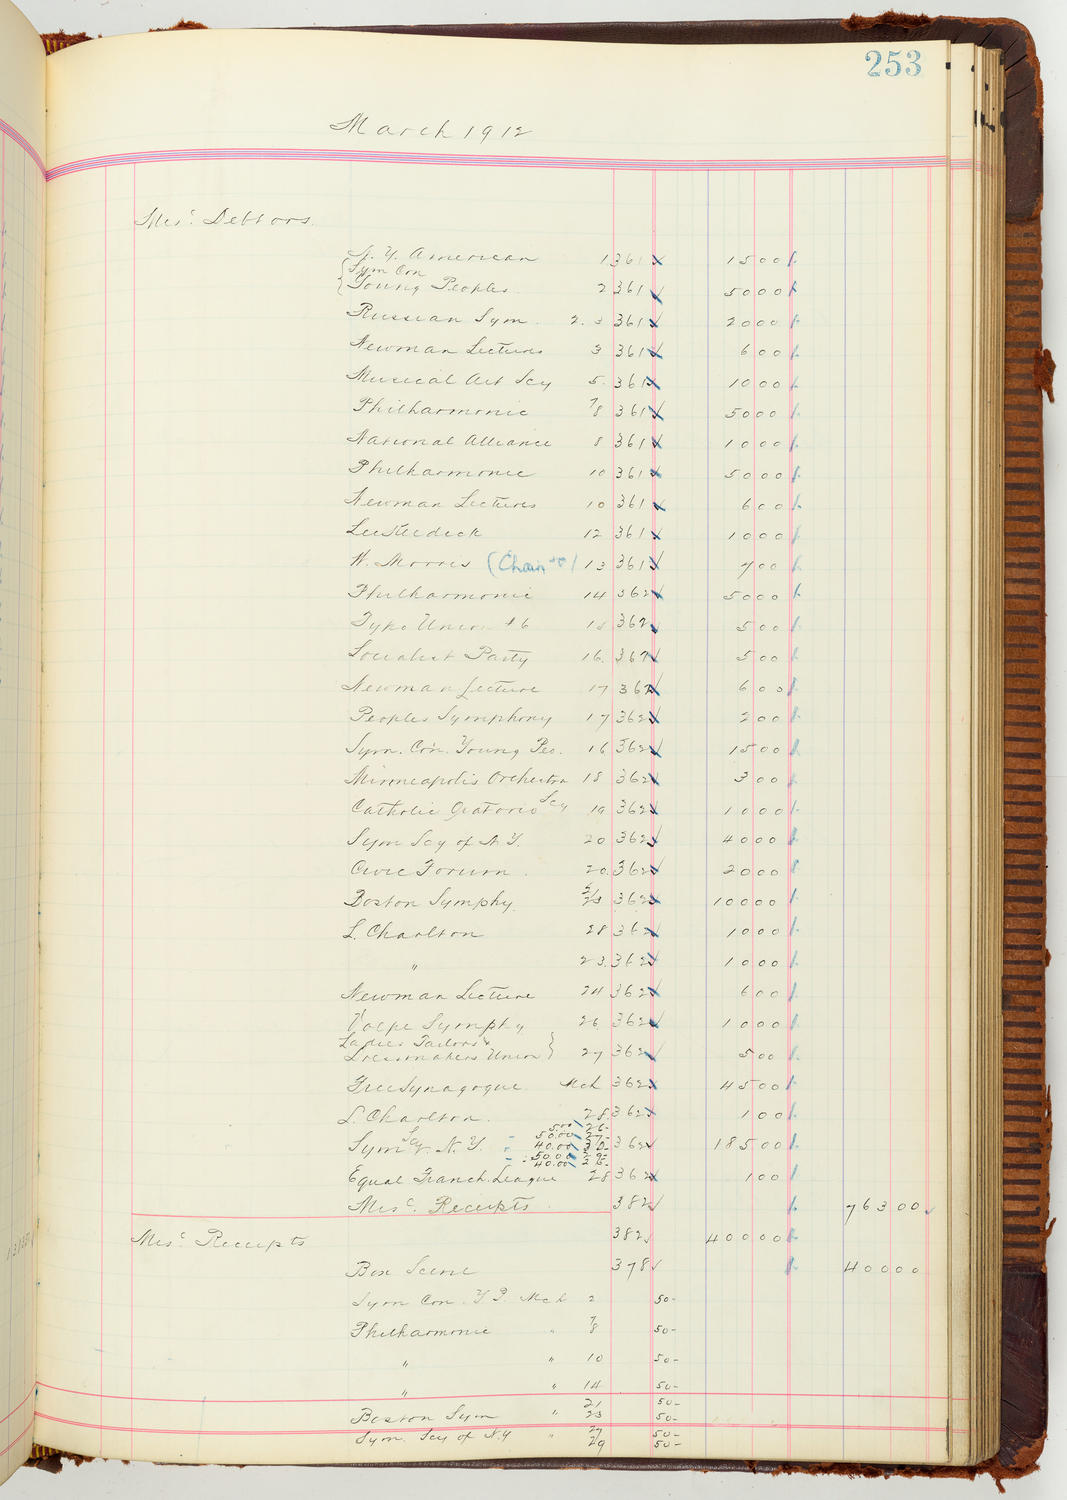 253
March 1912
Misc. Debtors.
N. Y. American 1 361 1500
Sym Con
Young Peoples 2 361 5000
Russian Sym. 2. 3 361 2000
Newman Lectures 3 361 600
Musical Art Scy 5. 361 1000
Philharmonic 7/8 361 5000
National Alliance 8 361 1000
Philharmonic 10 361 5000
Newman Lectures 10 361 600
Lee Keedick 12 361 1000
W. Morris (Chair) 13 361 700
Philharmonic 14 362 5000
Typo Union #6 362 500
Socialist Party 16. 362 500
Newman Lecture 17 362 600
Peoples Symphony 17 362 200
Sym. Con. Young Peo. 16 362 1500
Minneapolis Orchestra 18 362 300
Catholic Oratorio Scy 19 362 1000
Sym Scy of N. Y. 20 362 4000
Civic Forum. 20. 362 2000
Boston Symphy. 21/23 362 10000
L. Charlton 28 362 1000
" 23. 362 1000
Newman Lecture 24 362 600
Volpe Symphy 26 362 1000
Ladies Tailors &
Dressmakers Union 27 362 500
Free Synagogue. Mch 362 4500
L. Charlton. 28 362 100
5.00/ 26-
50.00/ 27-
Sym Scy. N. Y. 40.00/ 362 18500
50.00/ 29-
40.00/
Equal Franch. League 28 362 100
Misc. Receipts 382 76300
Misc. Receipts 382 40000
Box Scene 378 40000
Sym Con. Y. P. Mch 2 50-
Philharmonic " 7/8 50-
" " 10 50-
" " 14 50-
21 50-
Boston Sym " 23 50-
27 50-
Sym. Scy of N.Y " 29 50-